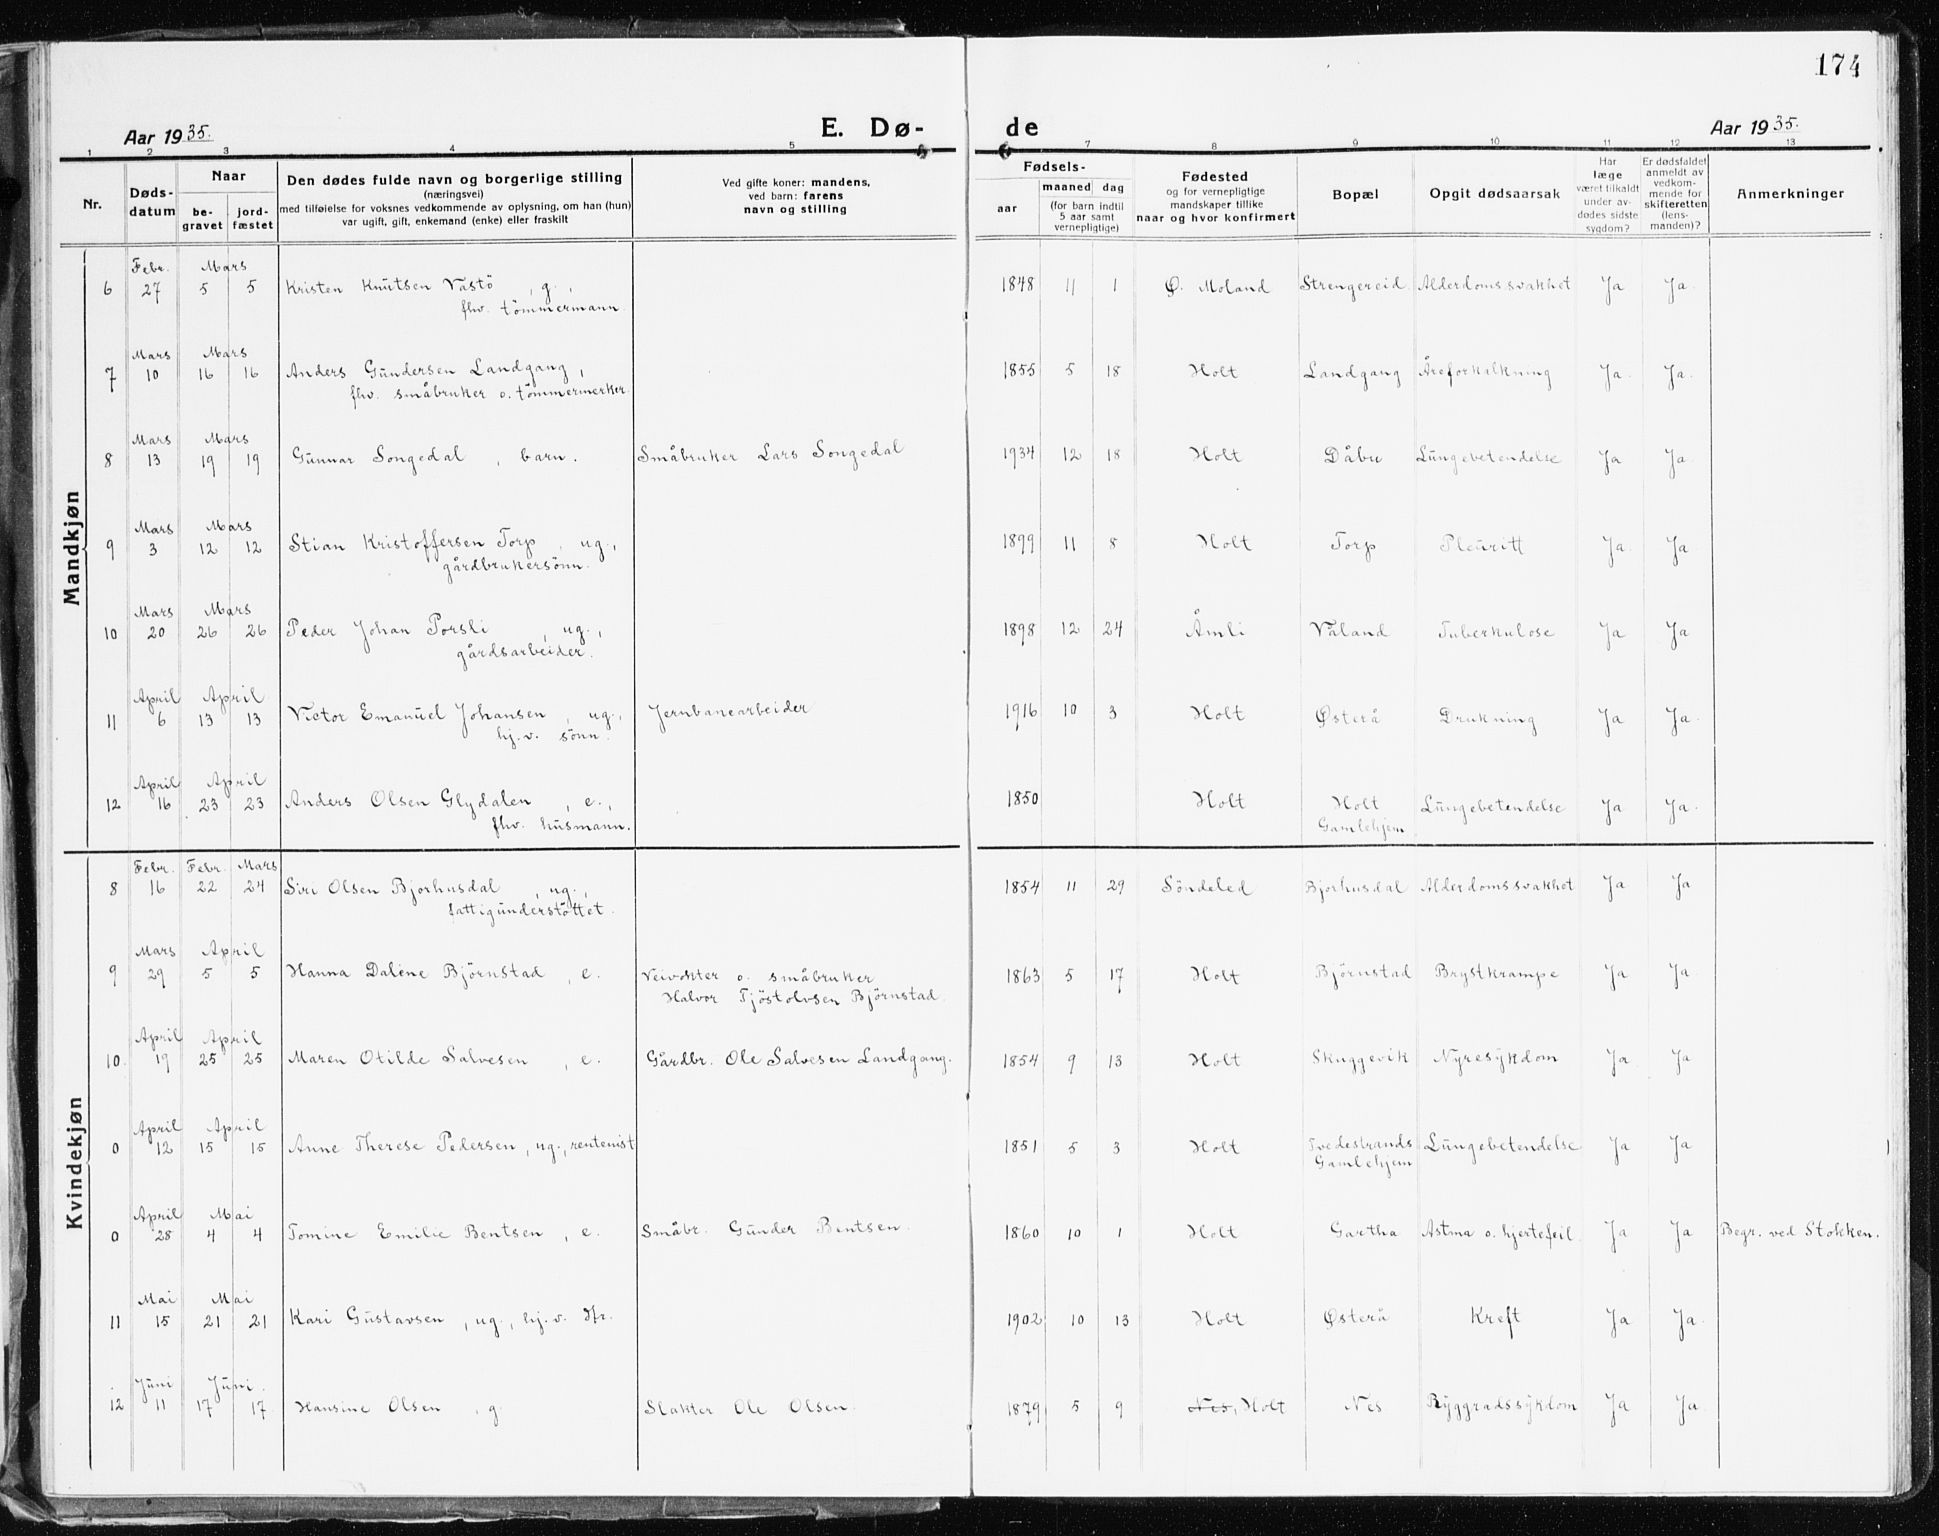 174
Aar 1935.
E. Dø-
de
Aar 1935.
1 2 3 4 5 7 8 9 10 11 12 13
Nr.
Døds-
datum
Naar
be-
gravet
jord-
fæstet
Den dødes fulde navn og borgerlige stilling
(næringsvei)
med tilføielse for voksnes vedkommende av oplysning, om han (hun)
var ugift, gift, enkemand (enke) eller fraskilt
Ved gifte koner: mandens,
ved barn: farens
navn og stilling
Fødsels-
aar
maaned dag
(for barn indtil
5 aar samt
vernepligtige)
Fødested
og for vernepligtige
mandskaper tillike
naar og hvor konfirmert
Bopæl
Opgit dødsaarsak
Har
læge
været tilkaldt
under av-
dødes sidste
sygdom?
Er dødsfaldet
anmeldt av
vedkom-
mende for
skifteretten
(lens-
manden)?
Anmerkninger
Mandkjøn
Febr. Mars
6 27 5 5 Kristen Knutsen Vastö , g., 1848 11 1 Ø. Moland Strengereid. Alderdomssvakhet Ja Ja.
fhv. tömmermann.
Mars Mars
7 10 16 16 Anders Gundersen Landgang, 1855 5 18 Holt Landgang Åreforkalkning Ja. Ja.
fhv. småbruker o. tömmermerker.
Mars Mars
8 13 19 19 Gunnar Songedal , barn. Småbruker Lars Songedal 1934 12 18 Holt Dåbu Lungebetendelse Ja Ja.
Mars Mars
9 3 12 12 Stian Kristoffersen Torp , ug., 1899 11 8 Holt Torp Pleuritt Ja. Ja.
gårdbrukersönn.
Mars Mars
10 20 26 26 Peder Johan Porsli , ug., 1898 12 24 Åmli Våland Tuberkulose Ja Ja
gårdsarbeider.
April April
11 6 13 13 Victor Emanuel Johansen , ug., Jernbanearbeider 1916 10 3 Holt Østerå Drukning Ja Ja.
hj.v. sönn.
April April
12 16 23 23 Anders Olsen Glydalen , e., 1850 Holt Holt Lungebetendelse Ja Ja.
fhv. husmann. Gamlehjem
Kvindekjøn
Febr. Febr. Mars
8 16 22 24 Siri Olsen Bjorhusdal , ug., 1854 11 29 Söndeled Bjorhusdal Alderdomssvakhet Ja Ja
fattigunderstöttet.
Mars April
9 29 5 5 Hanna Daléne Björnstad , e. Veivokter o. småbruker 1863 5 17 Holt Björnstad Brystkrampe Ja Ja.
Halvor Tjöstolvsen Björnstad.
April April
10. 19 25 25 Maren Otilde Salvesen , e. Gårdbr. Ole Salvesen Landgang. 1854 9 13 Holt Skuggevik Nyresykdom Ja Ja
April April
0 12 15 15 Anne Therese Pedersen, ug., rentenist 1851 5 3 Holt Tvedestrands Lungebetendelse Ja Ja
Gamlehjem
April Mai
0 28 4 4 Tomine Emilie Bentsen , e. Småbr. Gunder Bentsen. 1860 10 1 Holt Gartha Astma o. hjertefeil. Ja Ja Begr. ved Stokken.
Mai Mai
11 15 21 21 Kari Gustavsen , ug., hj.v. dtr. 1902 10 13 Holt Østerå Kreft Ja Ja.
Juni Juni.
12 11 17 17. Hansine Olsen , g. Slakter Ole Olsen. 1879 5 9 Nes, Holt Nes Ryggradssykdom Ja Ja.